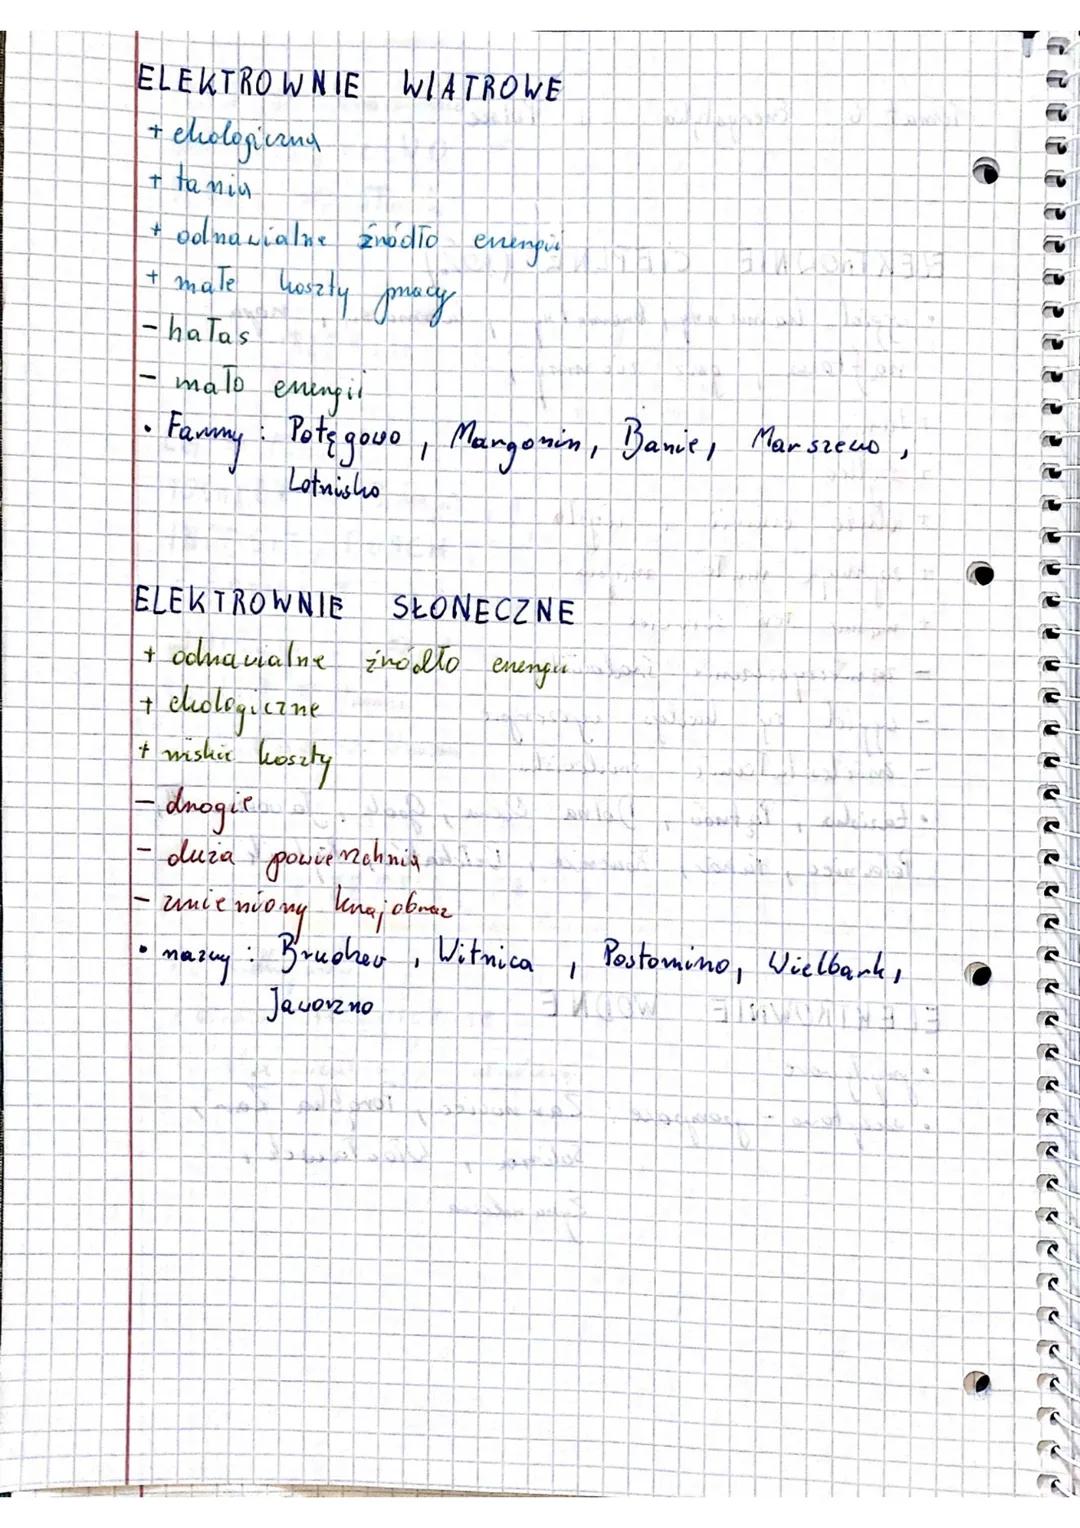 ELEKTROWNIE WIATROWE
+ ekologiczna
+ tania
+ odnawialne źródło energii
+ małe koszty pracy
- hałas
- mało energii
• Farmy : Potęgowo , Margonin, Banie, Marszewo ,
Lotnisko
ELEKTROWNIE SŁONECZNE
+ odnawialne źródło energii
+ ekologiczne
+ niskie koszty
- drogie
- duża powierzchnia
- zmieniony krajobraz
• nazwy : Brudzew , Witnica , Postomino, Wielbark,
Jaworzno